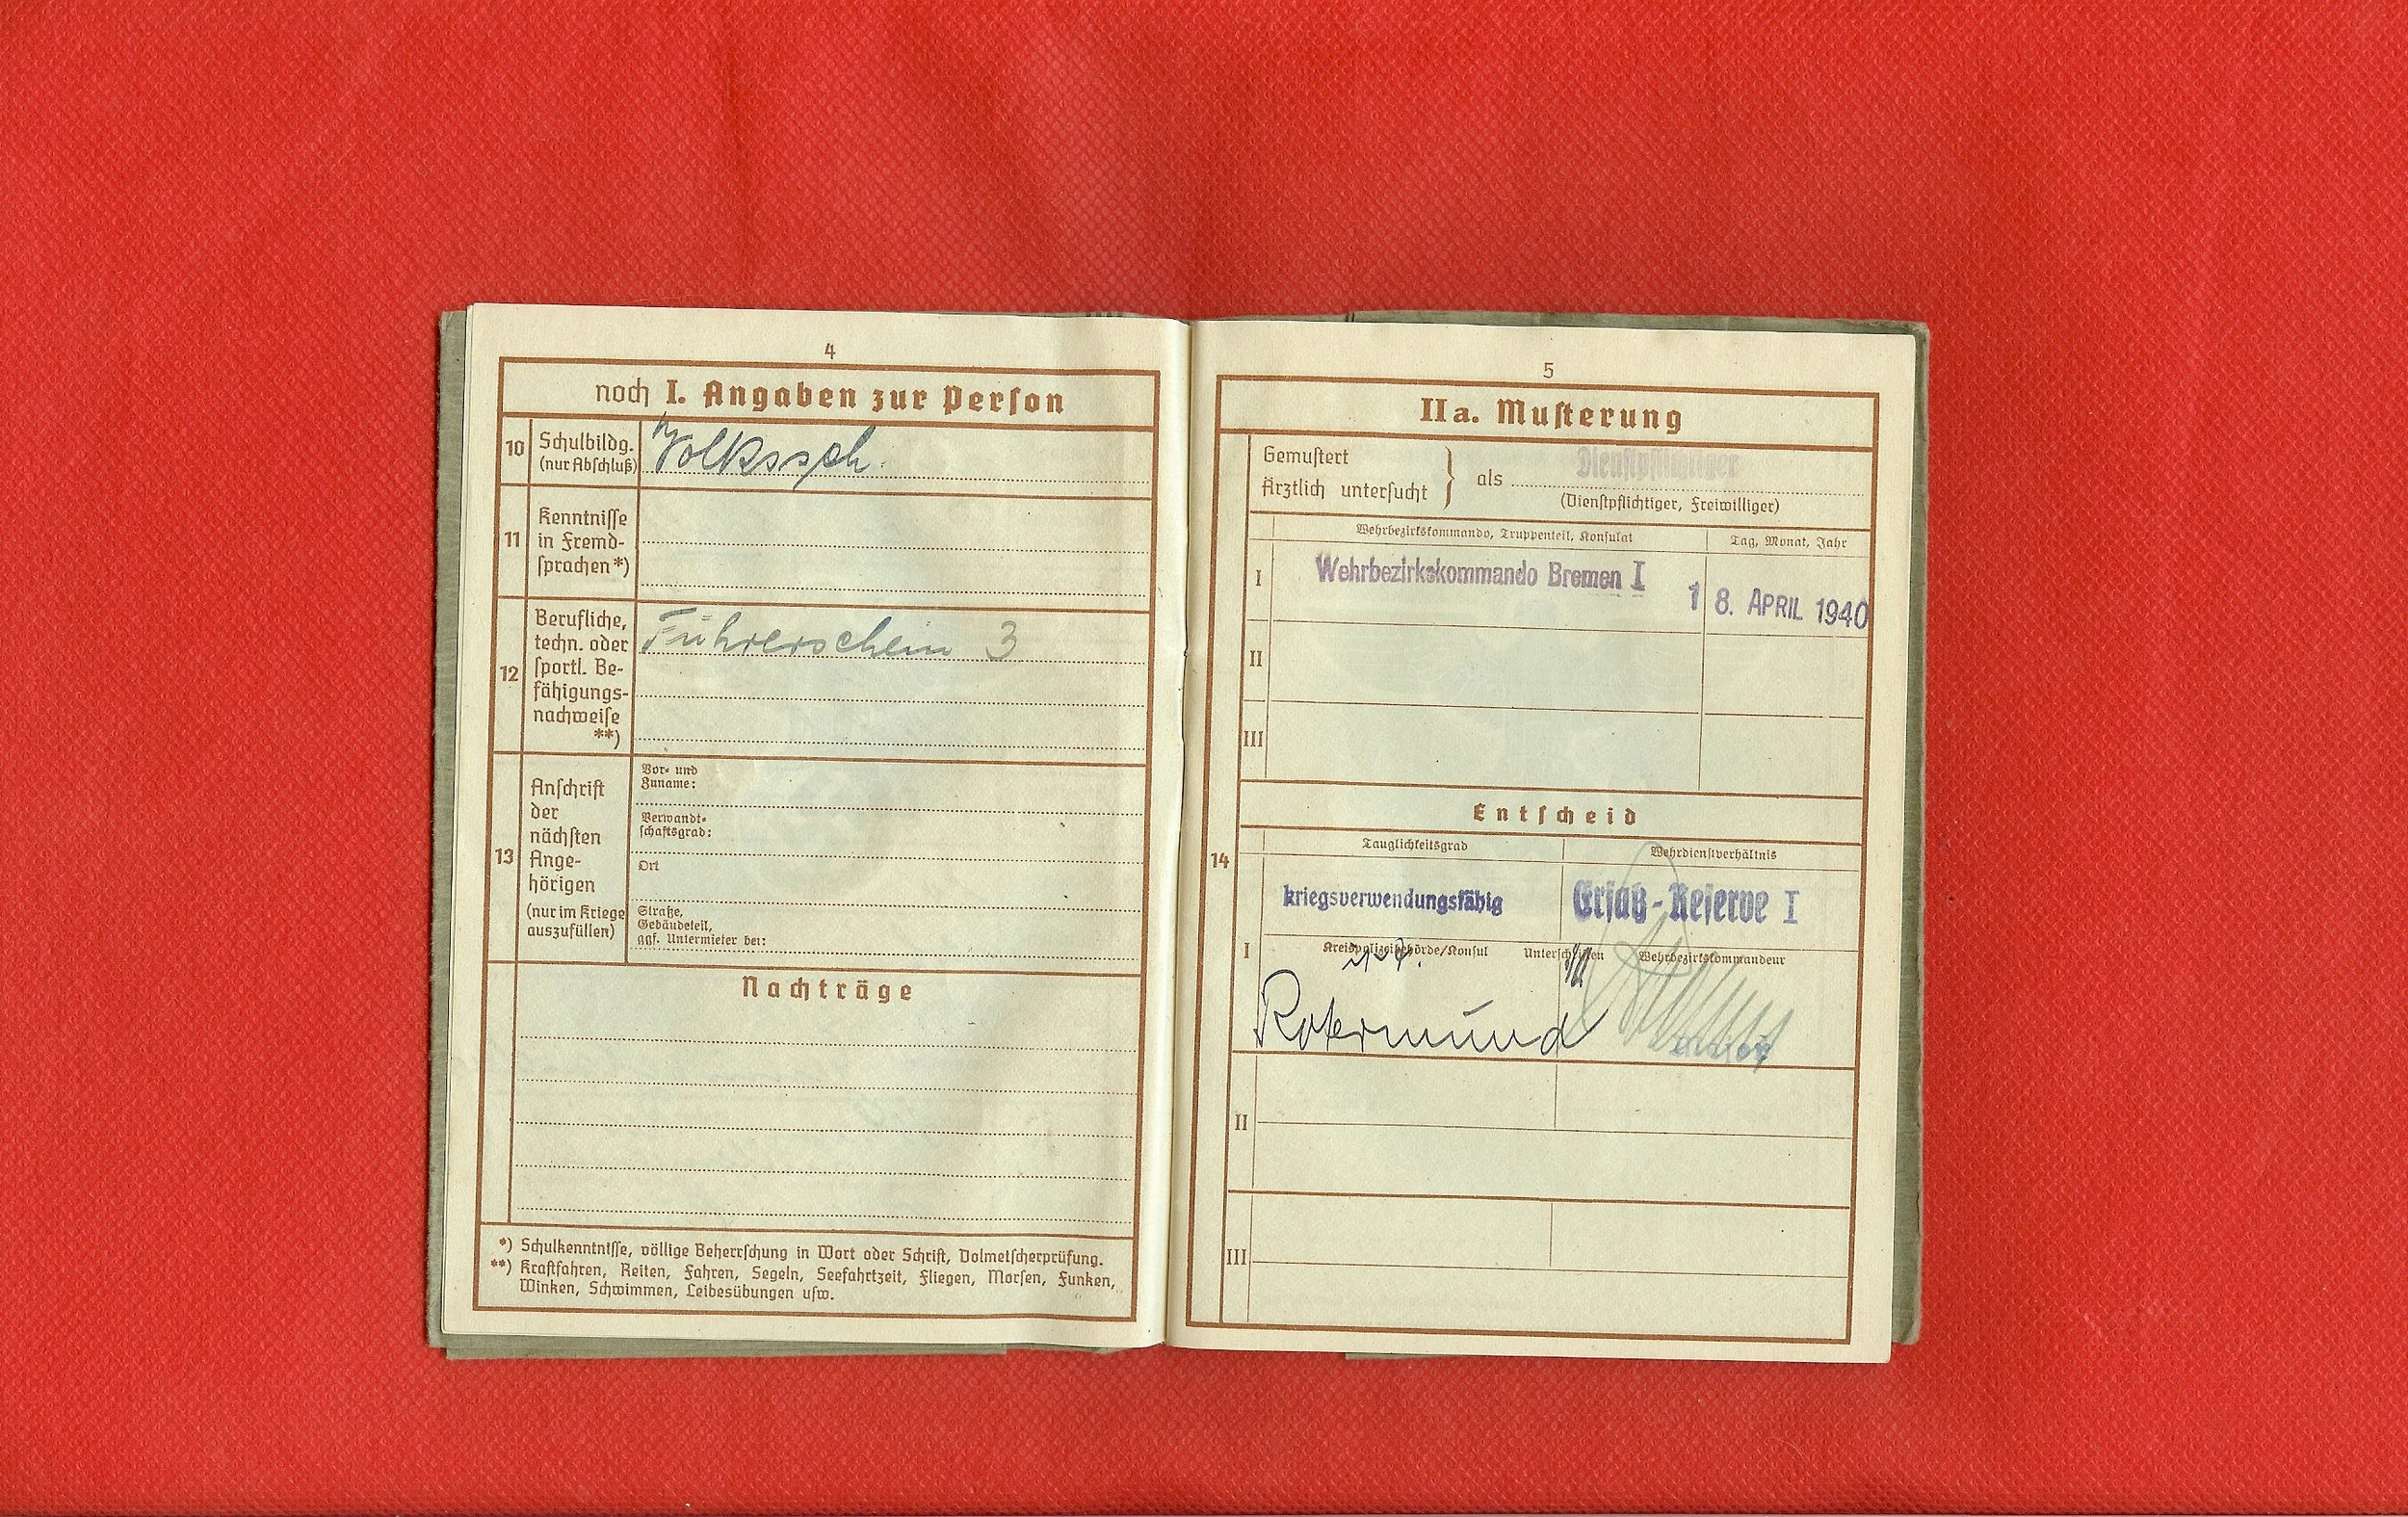 4
noch I. Angaben zur Person
10 Schulbildg. (nur Abschluß)
Volkssch.
11 Kenntnisse in Fremd-
sprachen *)
12 Berufliche,
techn. oder
sportl. Be-
fähigungs-
nachweise
**)
Führerschein 3
13 Anschrift
der
nächsten
Ange-
hörigen
(nur im Kriege
auszufüllen)
Vor- und
Zuname:
Verwandt-
schaftsgrad:
Ort
Straße,
Gebäudeteil,
ggf. Untermieter bei:
Nachträge
*) Schulkenntnisse, völlige Beherrschung in Wort oder Schrift, Dolmetscherprüfung.
**) Kraftfahren, Reiten, Fahren, Segeln, Seefahrtzeit, Fliegen, Morsen, Funken,
Winken, Schwimmen, Leibesübungen usw.
5
IIa. Musterung
14
Gemustert
Ärztlich untersucht } als Dienstpflichtiger
(Dienstpflichtiger, Freiwilliger)
Wehrbezirkskommando, Truppenteil, Konsulat Tag, Monat, Jahr
I Wehrbezirkskommando Bremen I 18. APRIL 1940
II
III
Entscheid
Tauglichkeitsgrad Wehrdienstverhältnis
I kriegsverwendungsfähig Ersatz-Reserve I
Kreispolizeibehörde/Konsul Unterschriften Wehrbezirkskommandeur
Rotermund
II
III